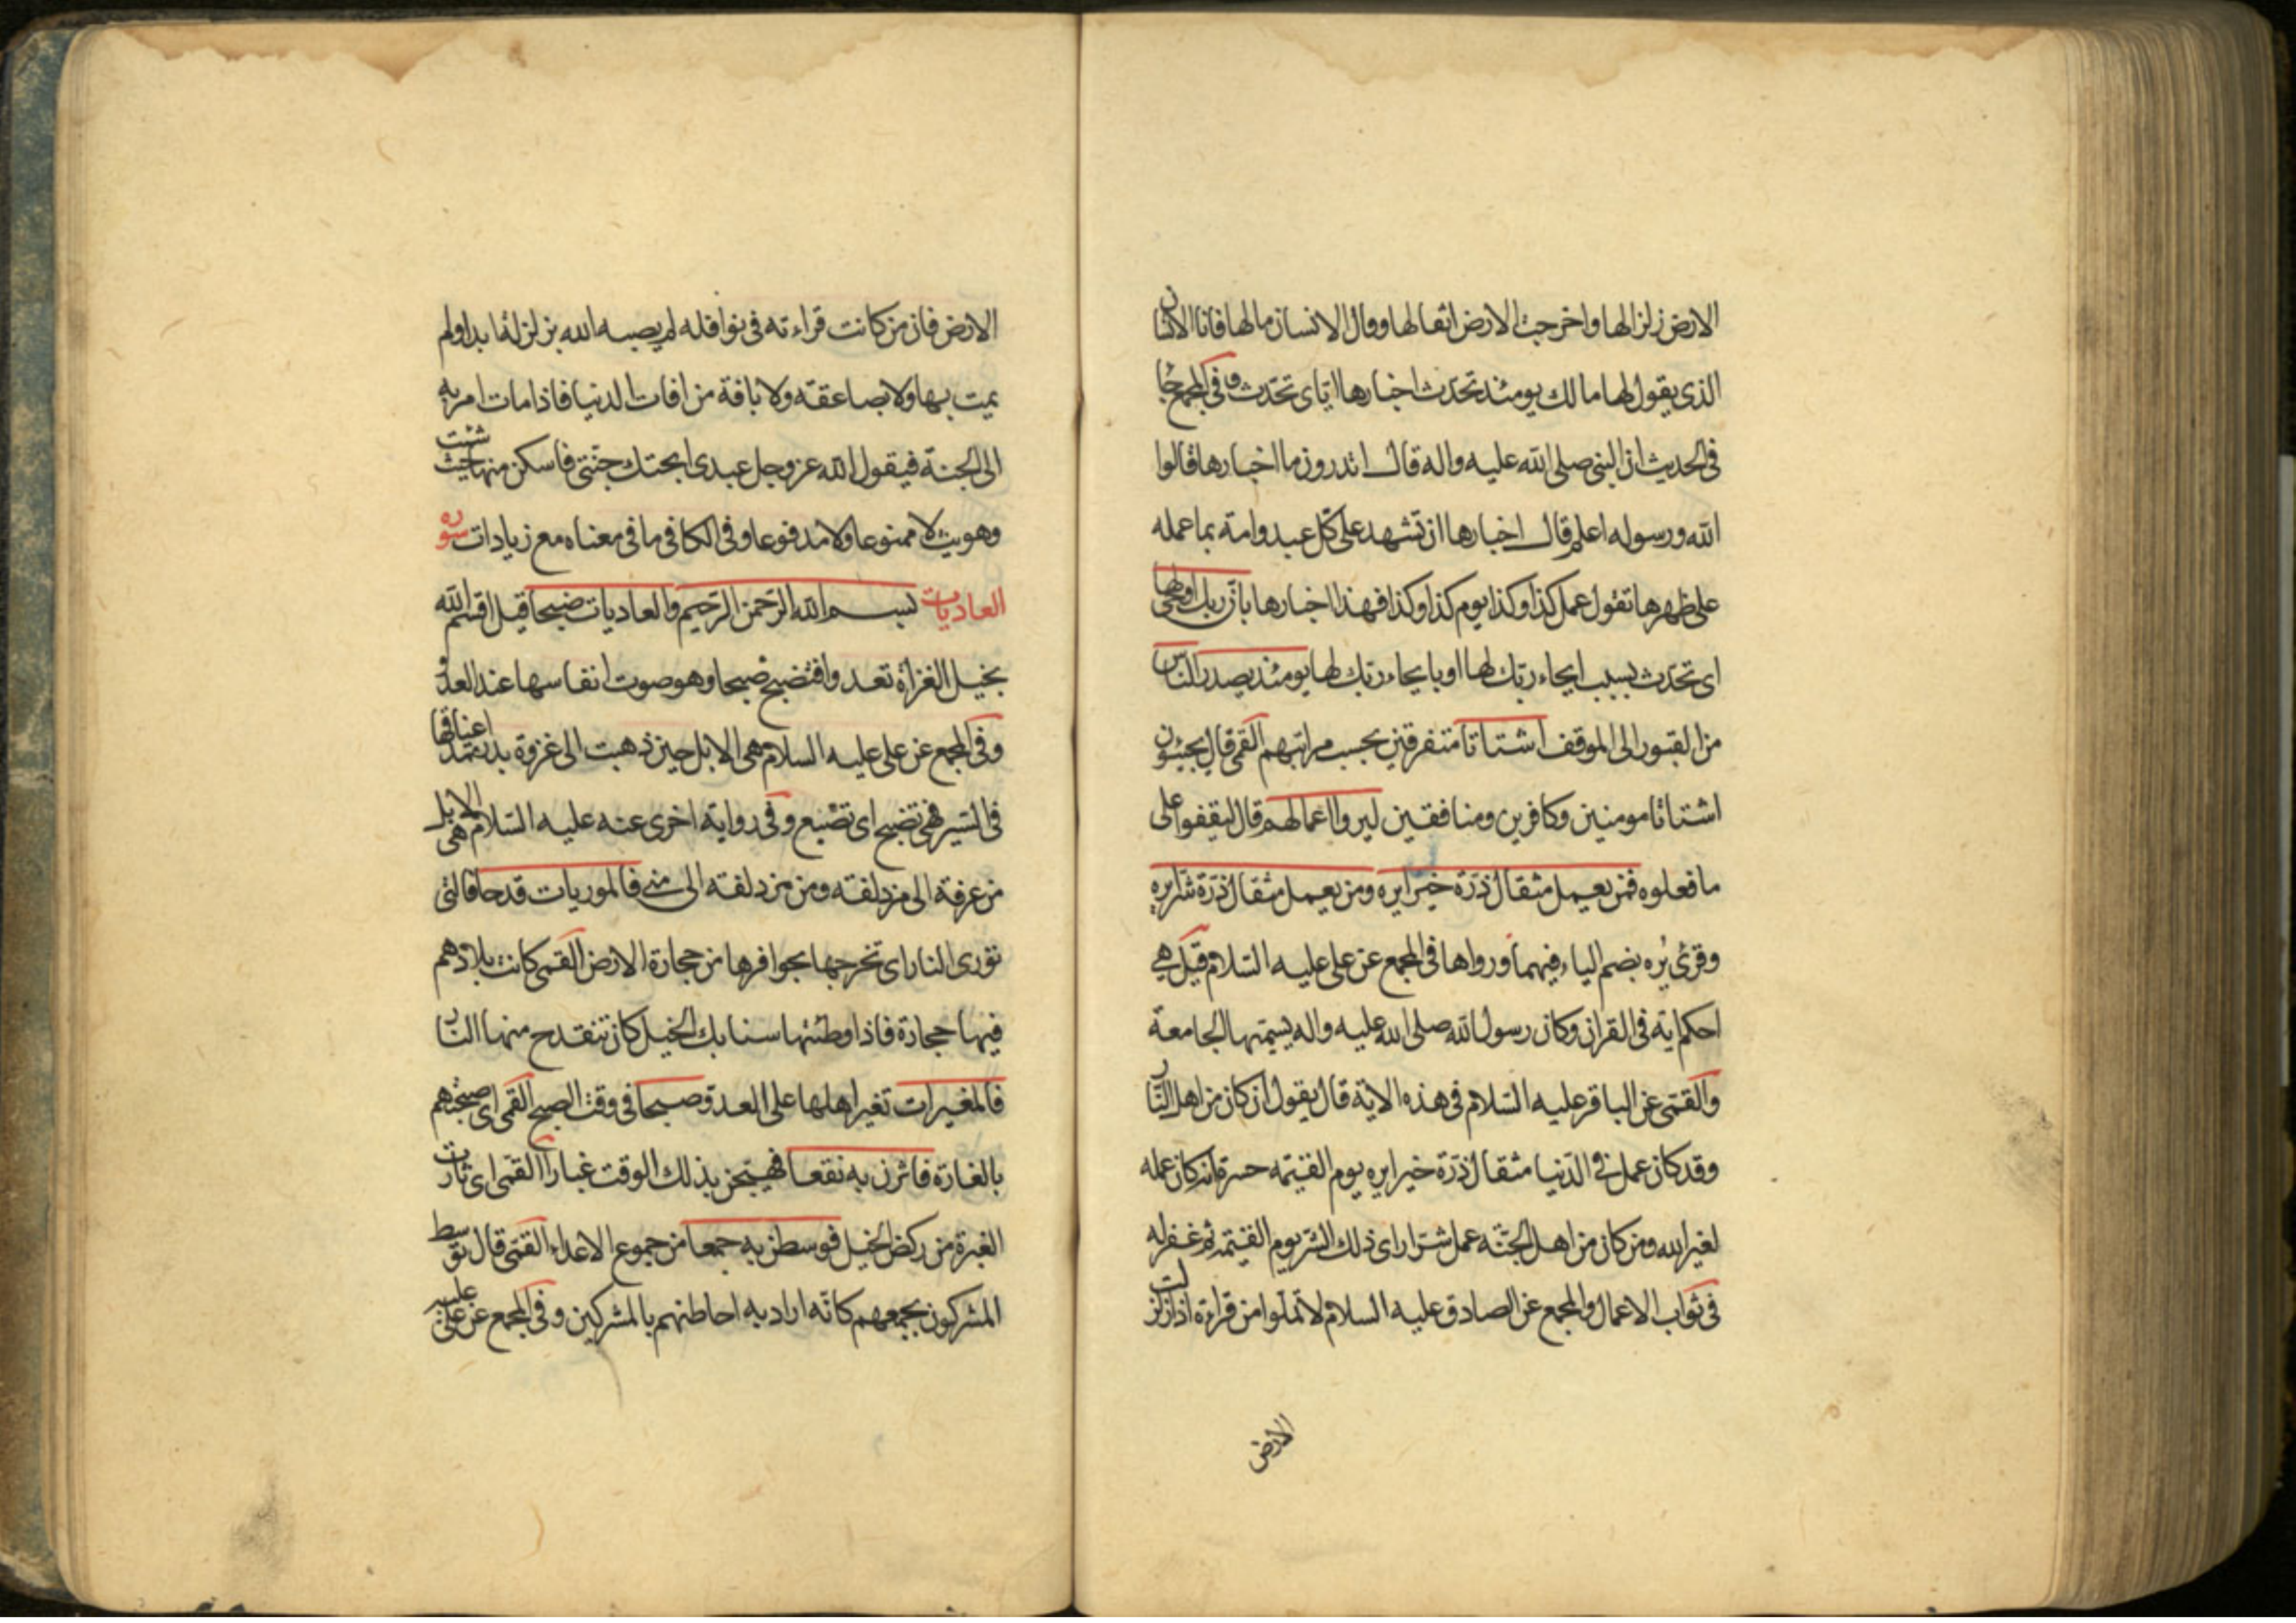 الارض زلزالها واخرجت الارض اثقالها وقال الانسان مالها فانا الانسان
الذى يقول لها مالك يومئذ تحدث اخبارها اياى تحدث وفى المجمع جا
فى الحديث ان النبى صلى الله عليه واله قال اتدرون ما اخبارها قالوا
الله ورسوله اعلم قال اخبارها ان تشهد على كل عبد وامة بما عمله
على ظهرها تقول عمل كذا وكذا يوم كذا وكذا فهذا اخبارها بان ربك اوحى لها
اى تحدث بسبب ايحاء ربك لها او بايحاء ربك لها يومئذ يصدر الناس
من القبور الى الموقف اشتاتا متفرقين بحسب مراتبهم القمى قال يجيئون
اشتاتا مومنين وكافرين ومنافقين ليروا اعمالهم قال ليقفوا على
ما فعلوه فمن يعمل مثقال ذرة خيرا يره ومن يعمل مثقال ذرة شرا يره
وقرئ يُره بضم الياء فيهما ورواها فى المجمع عن على عليه السلام قيل هي
احكم اية فى القران وكان رسول الله صلى الله عليه واله يسميها الجامعة
والقمى عن الباقر عليه السلام فى هذه الاية قال يقول ان كان من اهل النار
وقد كان عمل فى الدنيا مثقال ذرة خيرا يره يوم القيمه حسرة انه كان عمله
لغير الله ومن كان من اهل الجنة عمل شرا راى ذلك الشر يوم القيمه ثم غفر له
فى ثواب الاعمال والمجمع عن الصادق عليه السلام لا تملوا من قراءة اذا زلزلت
الارض
الارض فان من كانت قراءته فى نوافله لم يصبه الله بزلزلة ابدا ولم
يمت بها ولا بصاعقة ولا بافة من افات الدنيا فاذا مات امر به
الى الجنة فيقول الله عز وجل عبدى ابحتك جنتى فاسكن منها حيث شئت
وهويت لا ممنوعا ولا مدفوعا وفى الكافى ما فى معناه مع زيادات سوره
العاديات بسم الله الرحمن الرحيم والعاديات ضبحا قيل اقسم الله
بخيل الغزاة تعدوا فتضبح ضبحا وهو صوت انفاسها عند العدو
وفى المجمع عن على عليه السلام هى الابل حين ذهبت الى غزوة بدر تمد اعناقها
فى السير فهى تضبح اى تضبع وفى رواية اخرى عنه عليه السلام هى الابل
من عرفة الى مزدلفة ومن مزدلفة الى منى فالموريات قدحا فالتى
تورى النار اى تخرجها بحوافرها من حجارة الارض القمى كانت بلادهم
فيها حجارة فاذا وطئتها سنابك الخيل كان تنقدح منها النار
فالمغيرات تغير اهلها على العدو صبحا فى وقت الصبح القمى اى صبحهم
بالغارة فاثرن به نقعا فهيجن بذلك الوقت غبارا القمى اى ثارت
الغبرة من ركض الخيل فوسطن به جمعا من جموع الاعداء القمى قال توسط
المشركون بجمعهم كانه اراد به احاطتهم بالمشركين وفى المجمع عن على عليه